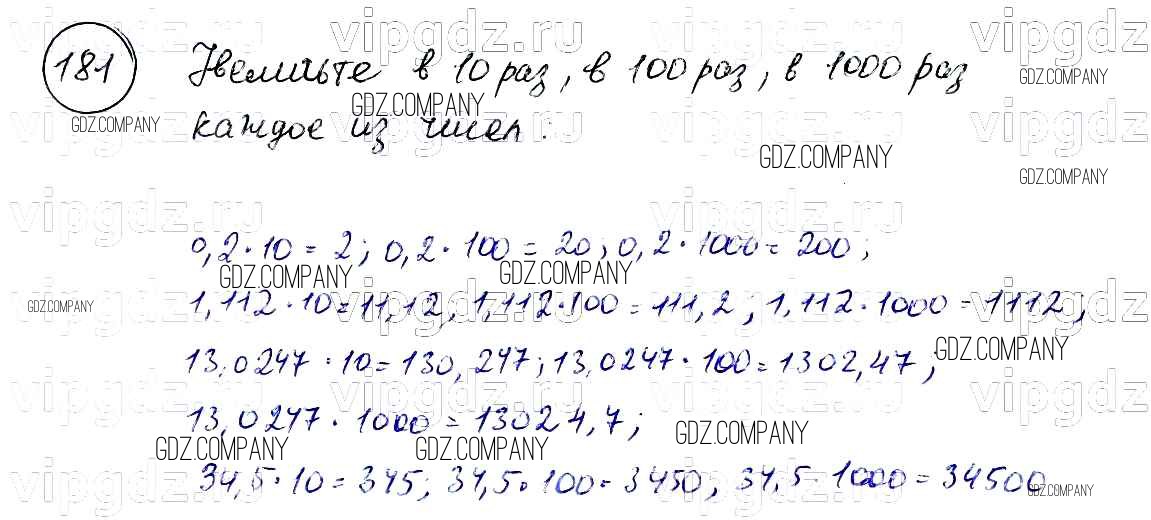 181 Увеличьте в 10 раз, в 100 раз, в 1000 раз
каждое из чисел:
0,2·10 = 2; 0,2·100 = 20; 0,2·1000 = 200;
1,112·10 = 11,12; 1,112·100 = 111,2; 1,112·1000 = 1112;
13,0247·10 = 130,247; 13,0247·100 = 1302,47;
13,0247·1000 = 13024,7;
34,5·10 = 345; 34,5·100 = 3450; 34,5·1000 = 34500
vipgdz.ru
GDZ.COMPANY